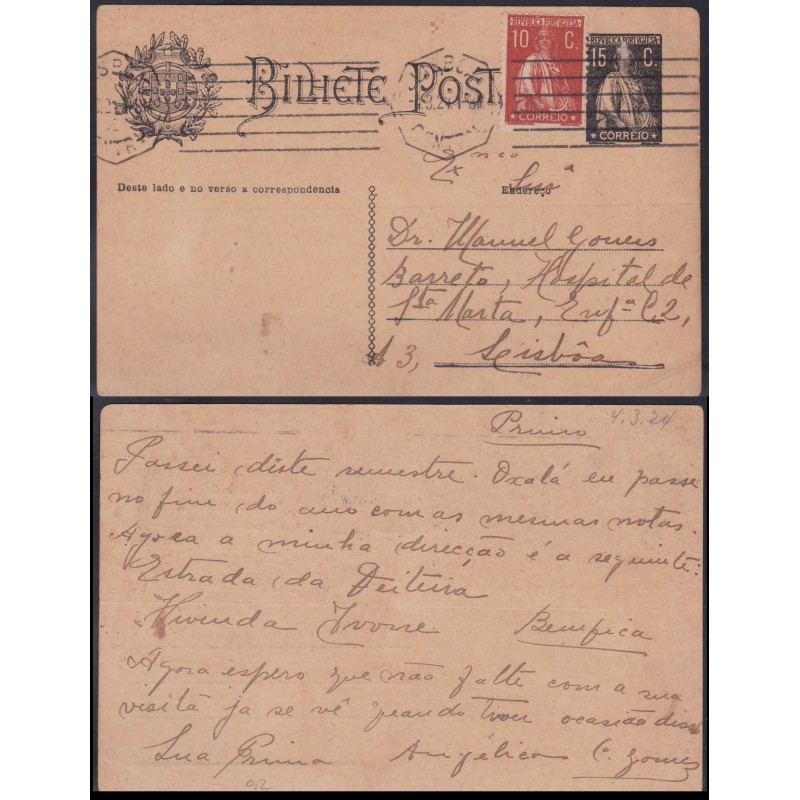 BILHETE POSTAL
REPUBLICA PORTUGUESA
10 C.
CORREIO
REPUBLICA PORTUGUESA
15 C.
CORREIO
Deste lado e no verso a correspondencia
Endereço
Dr. Manuel Gomes
Barreto, Hospital de
Sta Marta, Enfª C2,
A 3, Lisbôa
4.3.24
Primo
Passei dêste semestre. Oxalá eu passe
no fim do ano com as mesmas notas.
Agora a minha direcção é a seguinte:
Estrada da
Vivenda Ivone Bemfica
Agora espero que não falte com a sua
visitá ja se vê quando tiver ocasião
Sua Prima Angélica C. Gomes
92